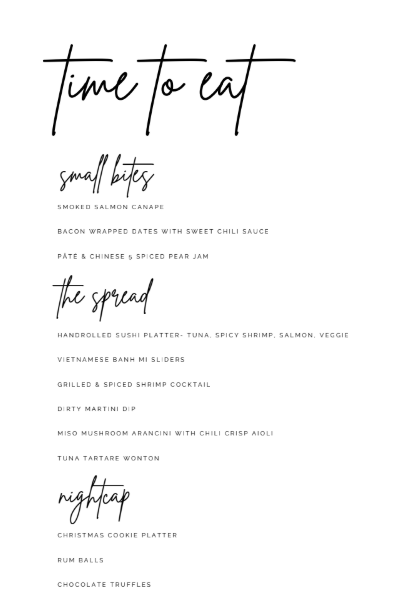 time to eat
small bites
SMOKED SALMON CANAPE
BACON WRAPPED DATES WITH SWEET CHILI SAUCE
PÂTÉ & CHINESE 5 SPICED PEAR JAM
the spread
HANDROLLED SUSHI PLATTER- TUNA, SPICY SHRIMP, SALMON, VEGGIE
VIETNAMESE BANH MI SLIDERS
GRILLED & SPICED SHRIMP COCKTAIL
DIRTY MARTINI DIP
MISO MUSHROOM ARANCINI WITH CHILI CRISP AIOLI
TUNA TARTARE WONTON
nightcap
CHRISTMAS COOKIE PLATTER
RUM BALLS
CHOCOLATE TRUFFLES